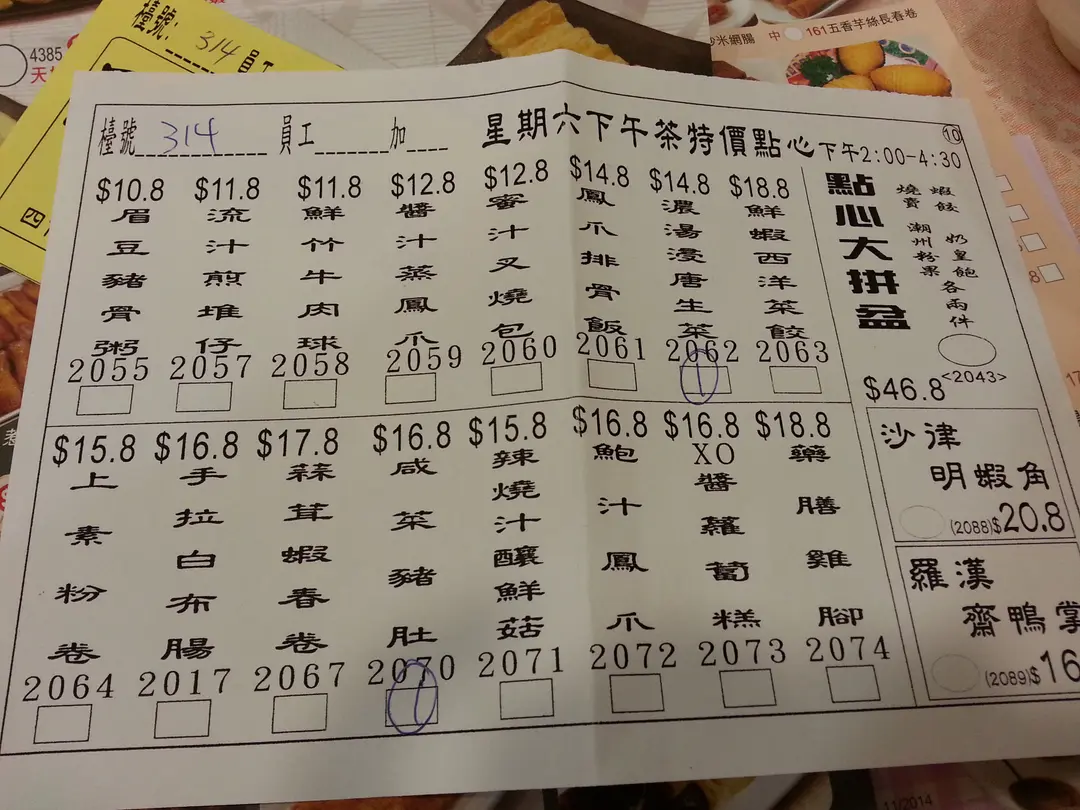 檯號: 314 員工
4385
161五香芋絲長春卷
檯號 314 員工 加 星期六下午茶特價點心 下午2:00-4:30
10
$10.8 眉豆豬骨粥 2055
$11.8 流汁煎堆仔 2057
$11.8 鮮竹牛肉球 2058
$12.8 醬汁蒸鳳爪 2059
$12.8 蜜汁叉燒包 2060
$14.8 鳳爪排骨飯 2061
$14.8 濃湯浸唐生菜 2062 1
$18.8 鮮蝦西洋菜餃 2063
點心大拼盆
蝦餃
燒賣
奶皇飽
潮州粉果
各兩件
$46.8 <2043>
$15.8 上素粉卷 2064
$16.8 手拉白布腸 2017
$17.8 蒜茸蝦春卷 2067
$16.8 咸菜豬肚 2070 1
$15.8 辣燒汁釀鮮菇 2071
$16.8 鮑汁鳳爪 2072
$16.8 XO醬蘿蔔糕 2073
$18.8 藥膳雞腳 2074
沙律
明蝦角
(2088)$20.8
羅漢
齋鴨掌
(2089)$16
11/2014